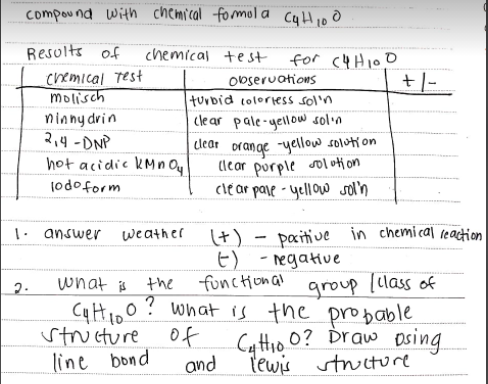 compound with chemical formola C4H10O
Results of chemical test for C4H10O
Chemical Test observations +/-
molisch turbid colorless sol'n
ninhydrin clear pale-yellow sol'n
2,4-DNP clear orange-yellow solution
hot acidic KMnO4 clear purple solution
Iodoform clear pale-yellow sol'n
1. answer weather (+) - positive in chemical reaction
(-) - negative
2. What is the functional group / class of
C4H10O? What is the probable
structure of C4H10O? Draw using
line bond and lewis structure